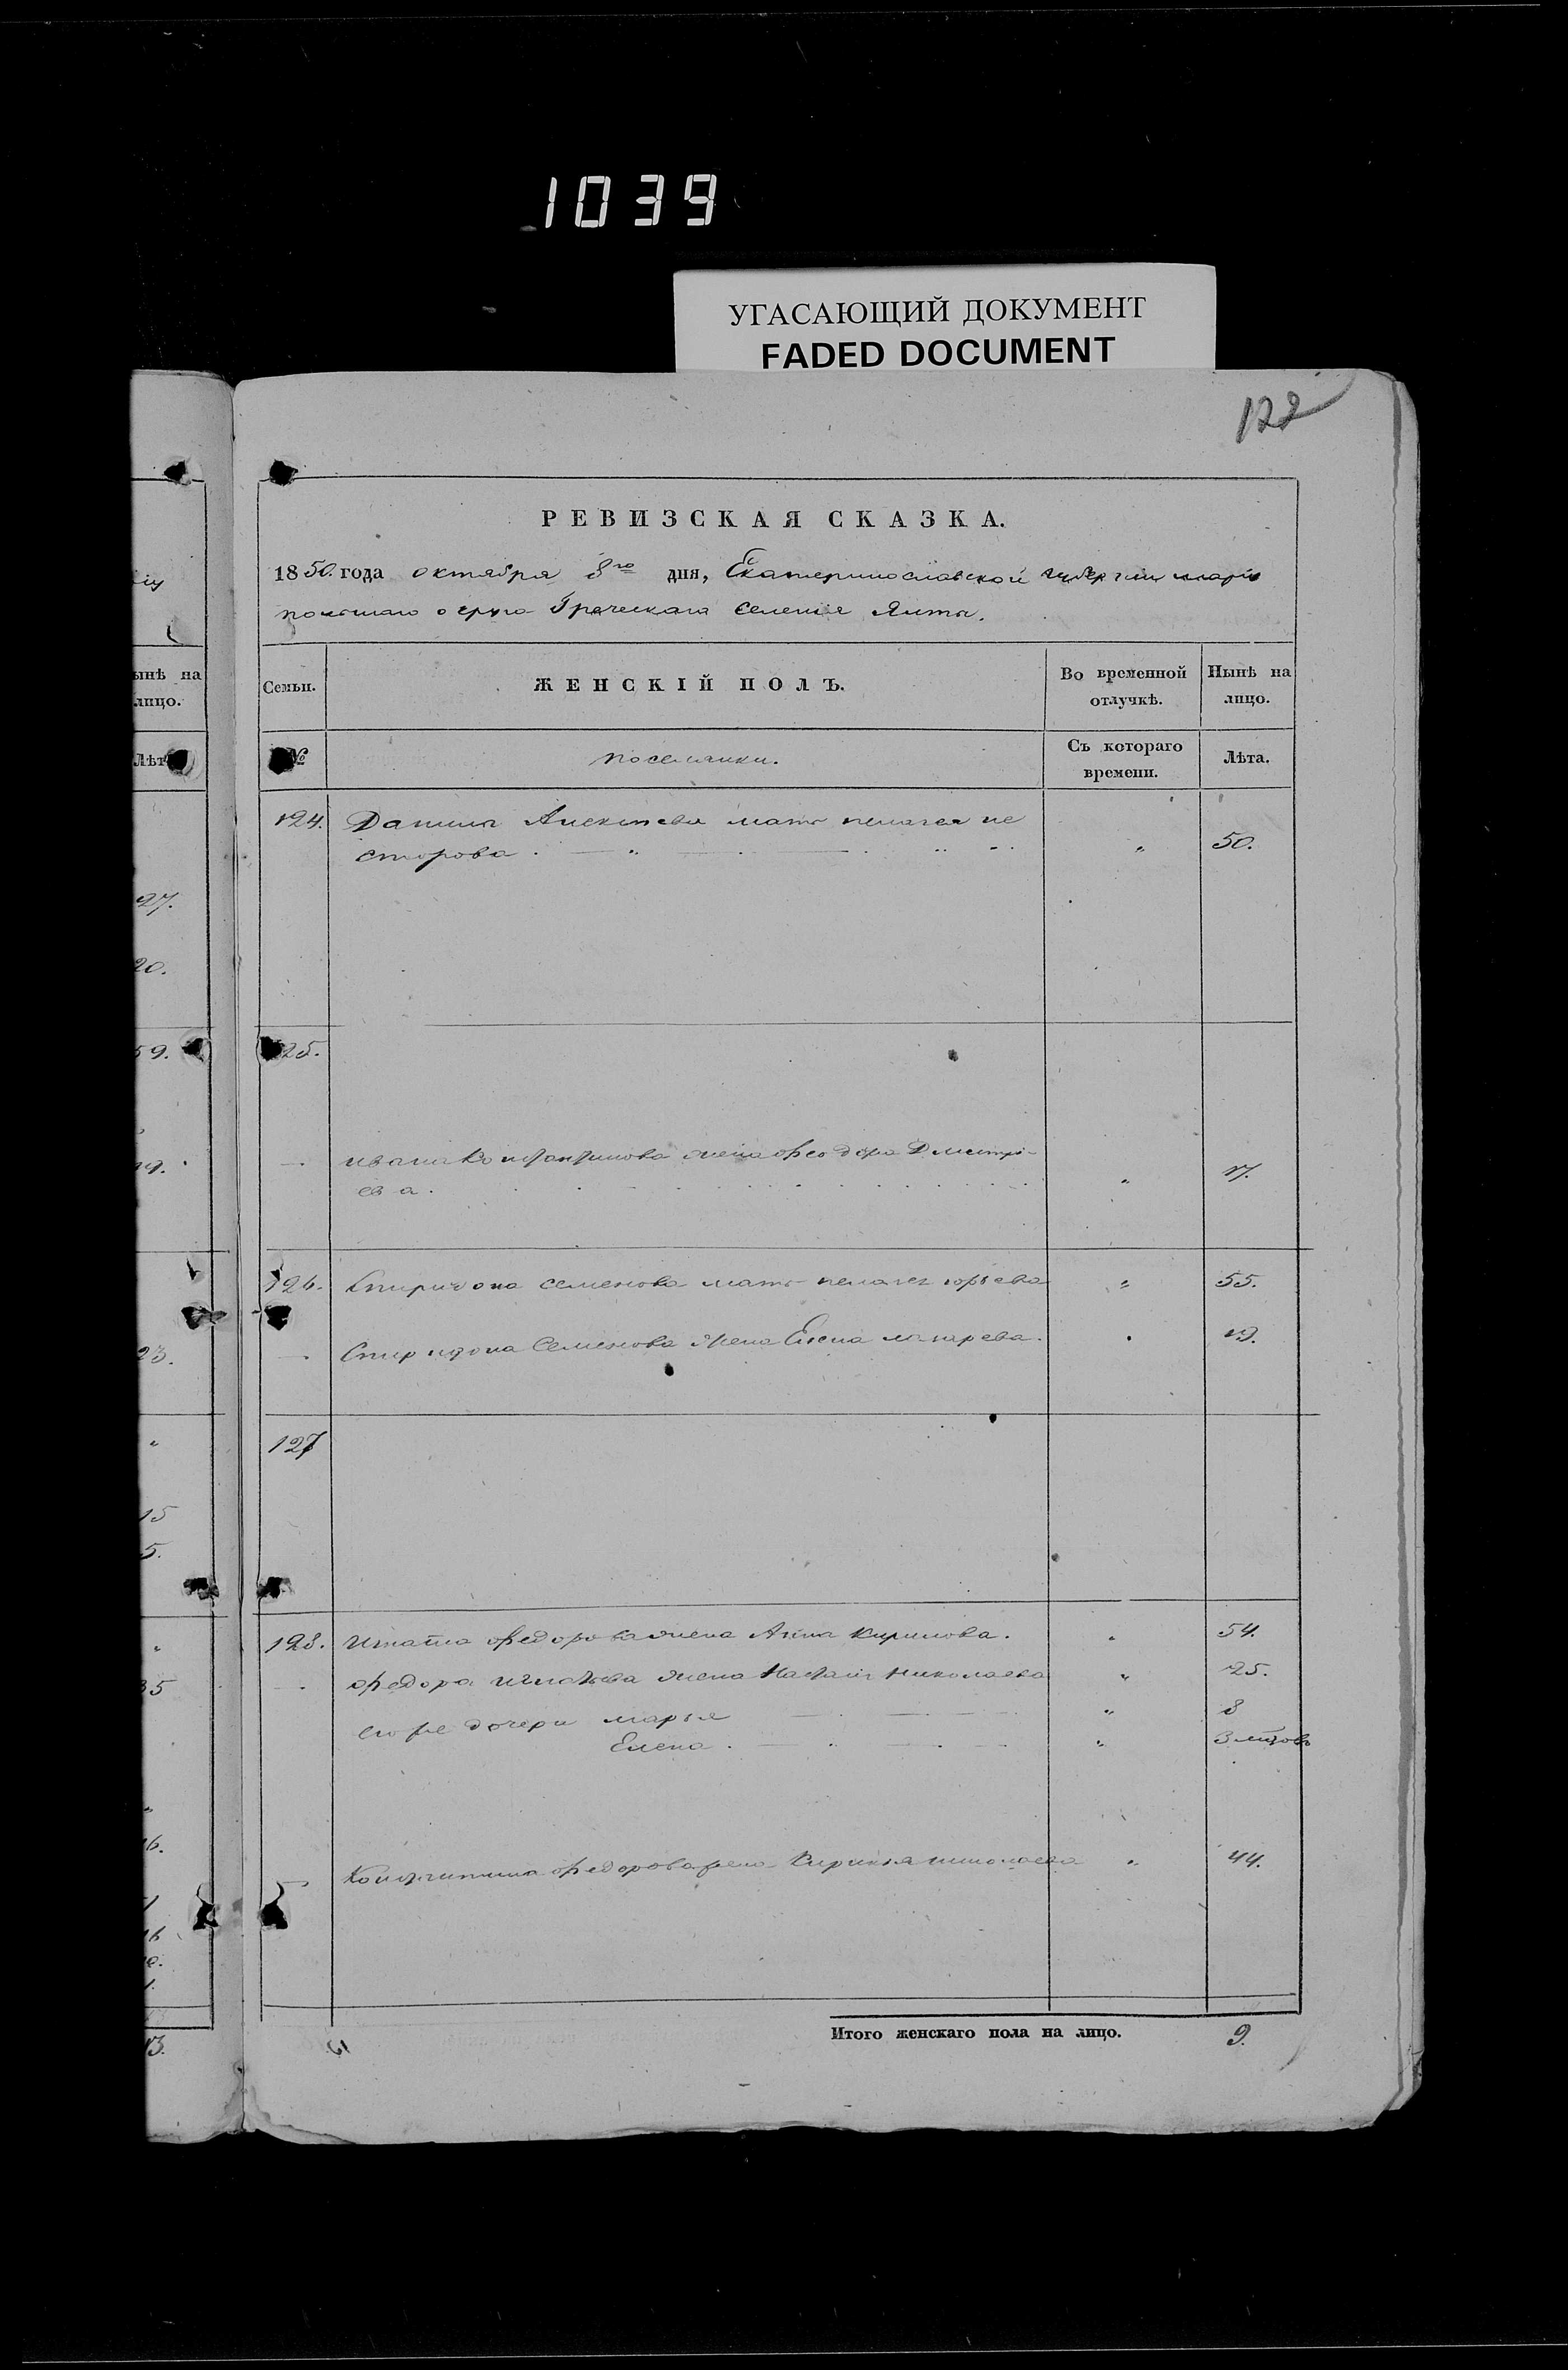 1039
УГАСАЮЩИЙ ДОКУМЕНТ
FADED DOCUMENT
122
РЕВИЗСКАЯ СКАЗКА.
1850. года октября 8го дня, Екатеринославской губерніи маріу
польскаго округа Греческаго селенія Ялты.
ынѣ на
лицо.
Семьи.
ЖЕНСКІЙ ПОЛЪ.
Во временной
отлучкѣ.
Нынѣ на
лицо.
Лѣт
№
поселянки.
Съ котораго
времени.
Лѣта.
124. Данила Алексѣева мать пелагея не
сторова . " 50.
27.
20.
59.
25.
Ивана Константинова жена феодора Дмитрі-
ева. " 17.
126. Спиридона семенова мать пелагея юрьева " 55.
— Спиридона Семенова жена Елена макарева. 19.
23.
127
15
5.
128. Игната федорова жена Анна кирилова. " 54.
— федора игнатьева жена Наталія николаева " 25.
35
его же дочери марья " 8
Елена . " 3 мѣсяцовъ
16.
— Константина федорова жена Кирикія николаева " 44.
16
13.
Итого женскаго пола на лицо. 9.